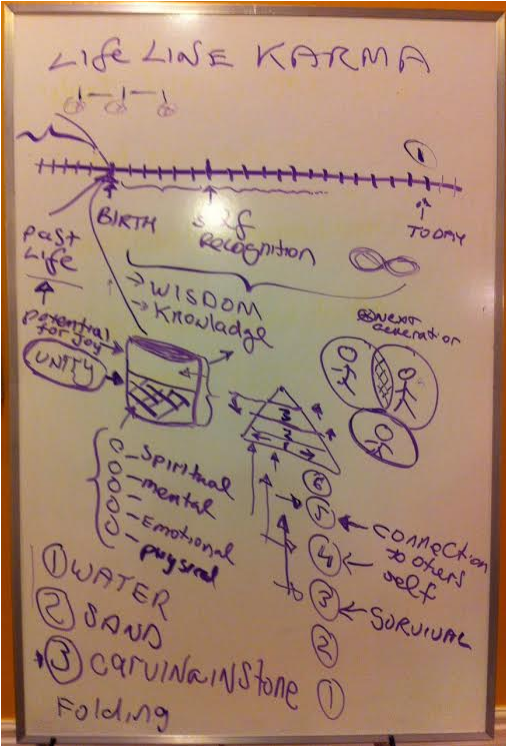 LIFE LINE KARMA
1
BIRTH
Self
Recognition
TODAY
past
Life
→ WISDOM
→ Knowladge
Next
Generation
potential
for joy
UNITY
3
2
1
Spiritual
mental
Emotional
physical
6
5
4
3
2
1
connection
to others
self
SURVIVAL
1 WATER
2 SAND
3 CARVINGINStone
Folding